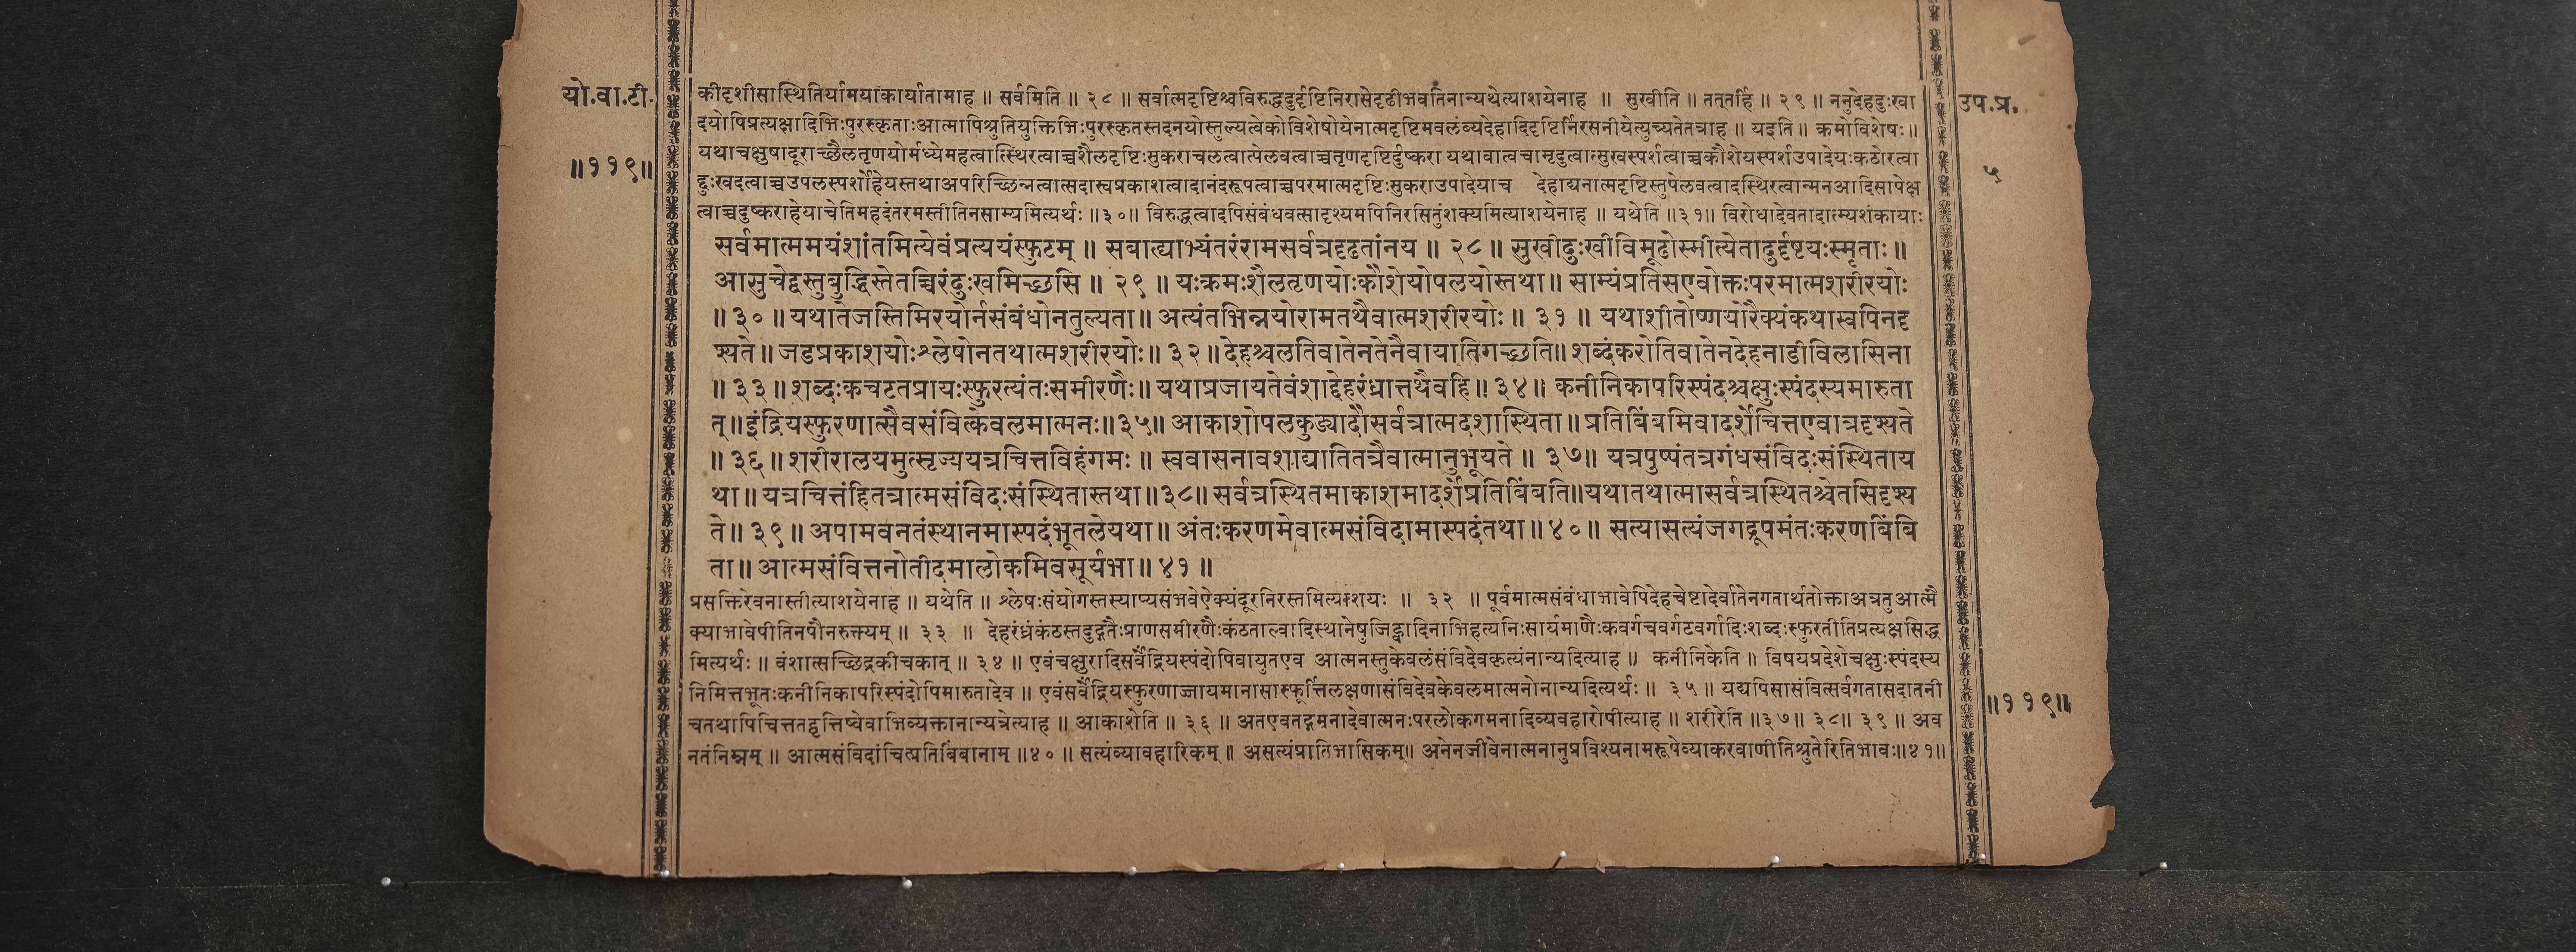 यो.वा.टी.
॥११९॥
कीदृशीसास्थितिर्यामयाकार्यातामाह ॥ सर्वमिति ॥ २८ ॥ सर्वात्मदृष्टिश्चविरुद्धदुर्दृष्टिनिरासेदृढीभवतिनान्यथेत्याशयेनाह ॥ सुखीति ॥ तत्तर्हि ॥ २९ ॥ ननुदेहदुःखा
दयोपिप्रत्यक्षादिभिःपुरस्कृताःआत्मापिश्रुतियुक्तिभिःपुरस्कृतस्तदनयोस्तुल्यत्वेकोविशेषोयेनात्मदृष्टिमवलंब्यदेहादिदृष्टिर्निरसनीयेत्युच्यतेतत्राह ॥ यइति ॥ क्रमोविशेषः॥
यथाचक्षुषादूराच्छैलतृणयोर्मध्येमहत्वात्स्थिरत्वाच्चशैलदृष्टिःसुकराचलत्वात्पेलवत्वाच्चतृणदृष्टिर्दुष्करा यथावात्वचामृदुत्वात्सुखस्पर्शत्वाच्चकौशेयस्पर्शउपादेयःकठोरत्वा
द्दुःखदत्वाच्चउपलस्पर्शोहेयस्तथाअपरिच्छिन्नत्वात्सदास्वप्रकाशत्वादानंदरूपत्वाच्चपरमात्मदृष्टिःसुकराउपादेयाच देहाद्यनात्मदृष्टिस्तुपेलवत्वादस्थिरत्वान्मनआदिसापेक्ष
त्वाच्चदुष्कराहेयाचेतिमहदंतरमस्तीतिनसाम्यमित्यर्थः ॥३०॥ विरुद्धत्वादपिसंबंधवत्सादृश्यमपिनिरसितुंशक्यमित्याशयेनाह ॥ यथेति ॥३१॥ विरोधादेवतादात्म्यशंकायाः
सर्वमात्ममयंशांतमित्येवंप्रत्ययंस्फुटम् ॥ सबाह्याभ्यंतरंरामसर्वत्रदृढतांनय ॥ २८ ॥ सुखीदुःखीविमूढोस्मीत्येतादुर्दृष्टयःस्मृताः ॥
आसुचेद्वस्तुबुद्धिस्तेतच्चिरंदुःखमिच्छसि ॥ २९ ॥ यःक्रमःशैलतृणयोःकौशेयोपलयोस्तथा ॥ साम्यंप्रतिसएवोक्तःपरमात्मशरीरयोः
॥ ३० ॥ यथातेजस्तिमिरयोर्नसंबंधोनतुल्यता ॥ अत्यंतभिन्नयोरामतथैवात्मशरीरयोः ॥ ३१ ॥ यथाशीतोष्णयोरैक्यंकथास्वपिनदृ
श्यते ॥ जडप्रकाशयोःश्लेषोनतथात्मशरीरयोः ॥ ३२ ॥ देहश्चलतिवातेनतेनैवायातिगच्छति ॥ शब्दंकरोतिवातेनदेहनाडीविलासिना
॥ ३३ ॥ शब्दःकचटतप्रायःस्फुरत्यंतःसमीरणैः ॥ यथाप्रजायतेवंशाद्देहरंध्रात्तथैवहि ॥ ३४ ॥ कनीनिकापरिस्पंदश्चक्षुःस्पंदस्यमारुता
त् ॥ इंद्रियस्फुरणात्सैवसंवित्केवलमात्मनः ॥३५॥ आकाशोपलकुड्यादौसर्वत्रात्मदशास्थिता ॥ प्रतिबिंबमिवादर्शेचित्तएवात्रदृश्यते
॥ ३६ ॥ शरीरालयमुत्सृज्ययत्रचित्तविहंगमः ॥ स्ववासनावशाद्यातितत्रैवात्मानुभूयते ॥ ३७ ॥ यत्रपुष्पंतत्रगंधसंविदःसंस्थिताय
था ॥ यत्रचित्तंहितत्रात्मसंविदःसंस्थितास्तथा ॥३८॥ सर्वत्रस्थितमाकाशमादर्शेप्रतिबिंबति ॥ यथातथात्मासर्वत्रस्थितश्चेतसिदृश्य
ते ॥ ३९ ॥ अपामवनतंस्थानमास्पदंभूतलेयथा ॥ अंतःकरणमेवात्मसंविदामास्पदंतथा ॥ ४० ॥ सत्यासत्यंजगद्रूपमंतःकरणबिंबि
ता ॥ आत्मसंवित्तनोतीदमालोकमिवसूर्यभा ॥ ४१ ॥
प्रसक्तिरेवनास्तीत्याशयेनाह ॥ यथेति ॥ श्लेषःसंयोगस्तस्याप्यसंभवेऐक्यंदूरनिरस्तमित्याशयः ॥ ३२ ॥ पूर्वमात्मसंबंधाभावेपिदेहचेष्टादेर्वातेनगतार्थतोक्ताअत्रतुआत्मै
क्याभावेपीतिनपौनरुक्त्यम् ॥ ३३ ॥ देहरंध्रंकंठस्तदुद्गतैःप्राणसमीरणैःकंठताल्वादिस्थानेषुजिह्वादिनाभिहत्यनिःसार्यमाणैःकवर्गचवर्गटवर्गादिःशब्दःस्फुरतीतिप्रत्यक्षसिद्ध
मित्यर्थः ॥ वंशात्सच्छिद्रकीचकात् ॥ ३४ ॥ एवंचक्षुरादिसर्वेंद्रियस्पंदोपिवायुतएव आत्मनस्तुकेवलंसंविदेवकृत्यंनान्यदित्याह ॥ कनीनिकेति ॥ विषयप्रदेशेचक्षुःस्पंदस्य
निमित्तभूतःकनीनिकापरिस्पंदोपिमारुतादेव ॥ एवंसर्वेंद्रियस्फुरणाज्जायमानासास्फूर्त्तिलक्षणासंविदेवकेवलमात्मनोनान्यदित्यर्थः ॥ ३५ ॥ यद्यपिसासंवित्सर्वगतासदातनी
चतथापिचित्ततद्वृत्तिष्वेवाभिव्यक्तानान्यत्रेत्याह ॥ आकाशेति ॥ ३६ ॥ अतएवतद्गमनादेवात्मनःपरलोकगमनादिव्यवहारोपीत्याह ॥ शरीरेति ॥३७॥ ३८॥ ३९ ॥ अव
नतंनिम्नम् ॥ आत्मसंविदांचित्प्रतिबिंबानाम् ॥४०॥ सत्यंव्यावहारिकम् ॥ असत्यंप्रातिभासिकम्॥ अनेनजीवेनात्मनानुप्रविश्यनामरूपेव्याकरवाणीतिश्रुतेरितिभावः॥४१॥
उप.प्र.
५
॥११९॥